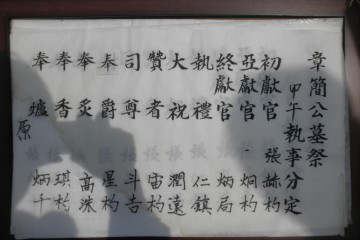 章簡公墓祭
甲午執事分定
初獻官 張赫杓
亞獻官 〃 炯杓
終獻官 〃 炳局
執禮 仁鎮
大祝 潤遠
贊者 宙杓
司尊 斗吉
奉爵 星杓
奉炙 高洙
奉香 琪杓
奉爐 炳千
原